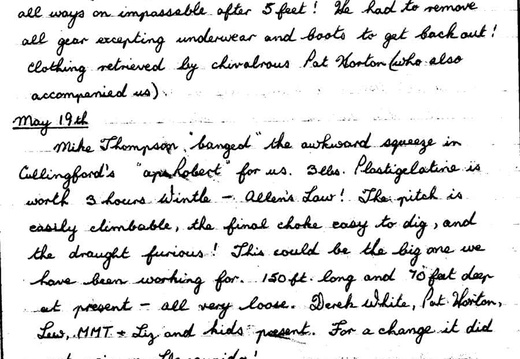 all ways on impassable after 5 feet! He had to remove
all gear excepting underwear and boots to get back out!
Clothing retrieved by chivalrous Pat Horton (who also
accompanied us).
May 19th
Mike Thompson "banged" the awkward squeeze in
Cullingford's "ape Robert" for us. 3 lbs. Plastigelatine is
worth 3 hours Wintle - Allen's Law! The pitch is
easily climbable, the final choke easy to dig, and
the draught furious! This could be the big one we
have been working for. 150 ft. long and 70 feet deep
at present - all very loose. Derek White, Pat Horton,
Lew, MMT + Liz and kids present. For a change it did